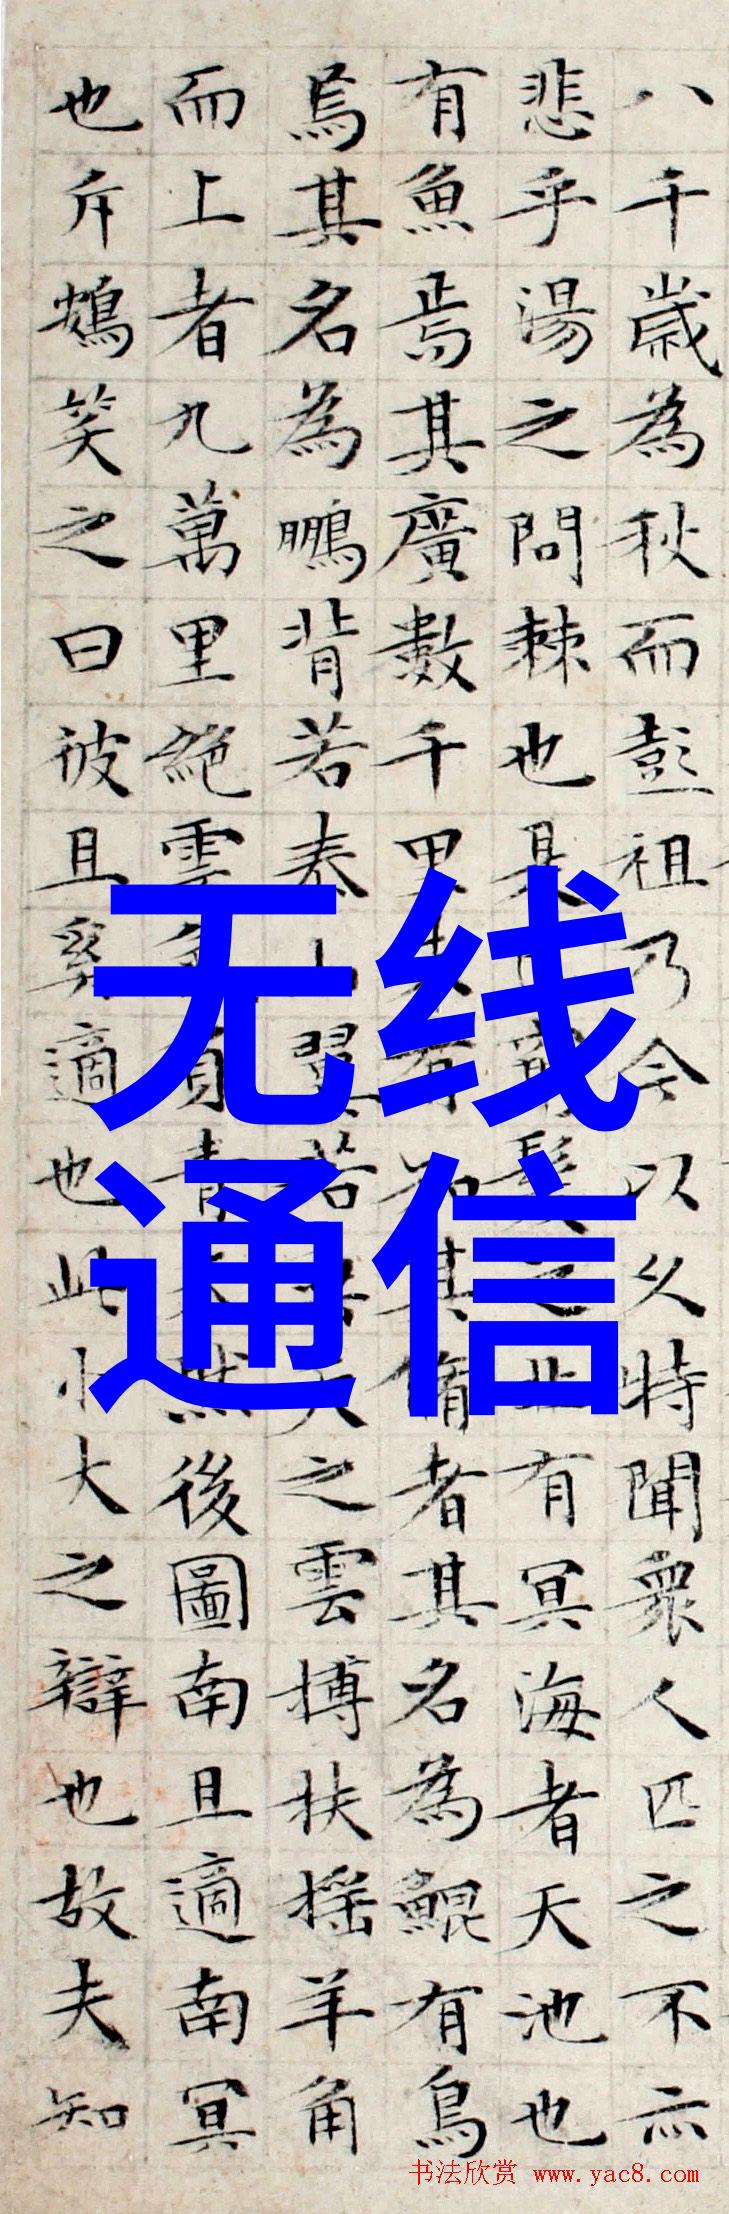 八千歲為秋而彭祖乃今以久特聞衆人匹之不亦
悲乎湯之問棘也是已窮髮之北有冥海者天池也
有魚焉其廣數千里未有知其脩者其名為鯤有鳥
焉其名為鵬背若泰山翼若垂天之雲搏扶搖羊角
而上者九萬里絕雲氣負青天然後圖南且適南冥
也斥鴳笑之曰彼且奚適也此小大之辯也故夫知
无线
通信
书法欣赏 www.yac8.com